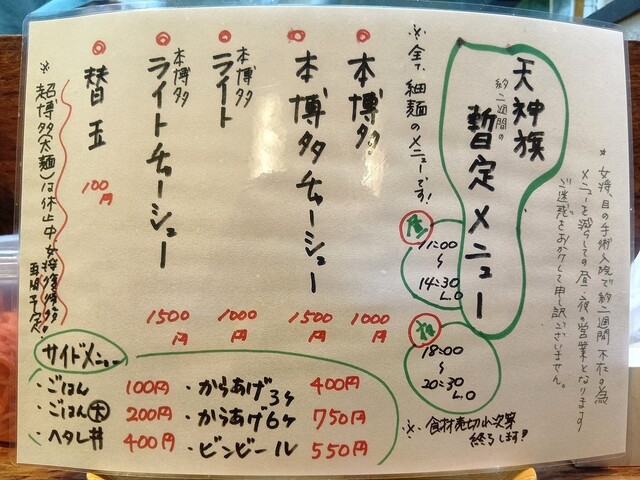 ＊女将、目の手術入院で約二週間不在の為
メニューを減らしての昼・夜の営業となります
ご迷惑をおかけして申し訳ございません。
天神旗
約二週間の
暫定メニュー
昼
11:00
〜
14:30
L.O
夜
18:00
〜
20:30
L.O
※食材売切れ次第
終了します!
※全て、細麺のメニューです!
◎本博多 1000円
◎本博多チャーシュー 1500円
◎本博多
ライト 1000円
◎本博多
ライトチャーシュー 1500円
◎替玉 100円
※超博多(太麺)は休止中、女将復帰後
再開予定。
サイドメニュー
・ごはん 100円
・ごはん大 200円
・ヘタレ丼 400円
・からあげ3ヶ 400円
・からあげ6ヶ 750円
・ビンビール 550円